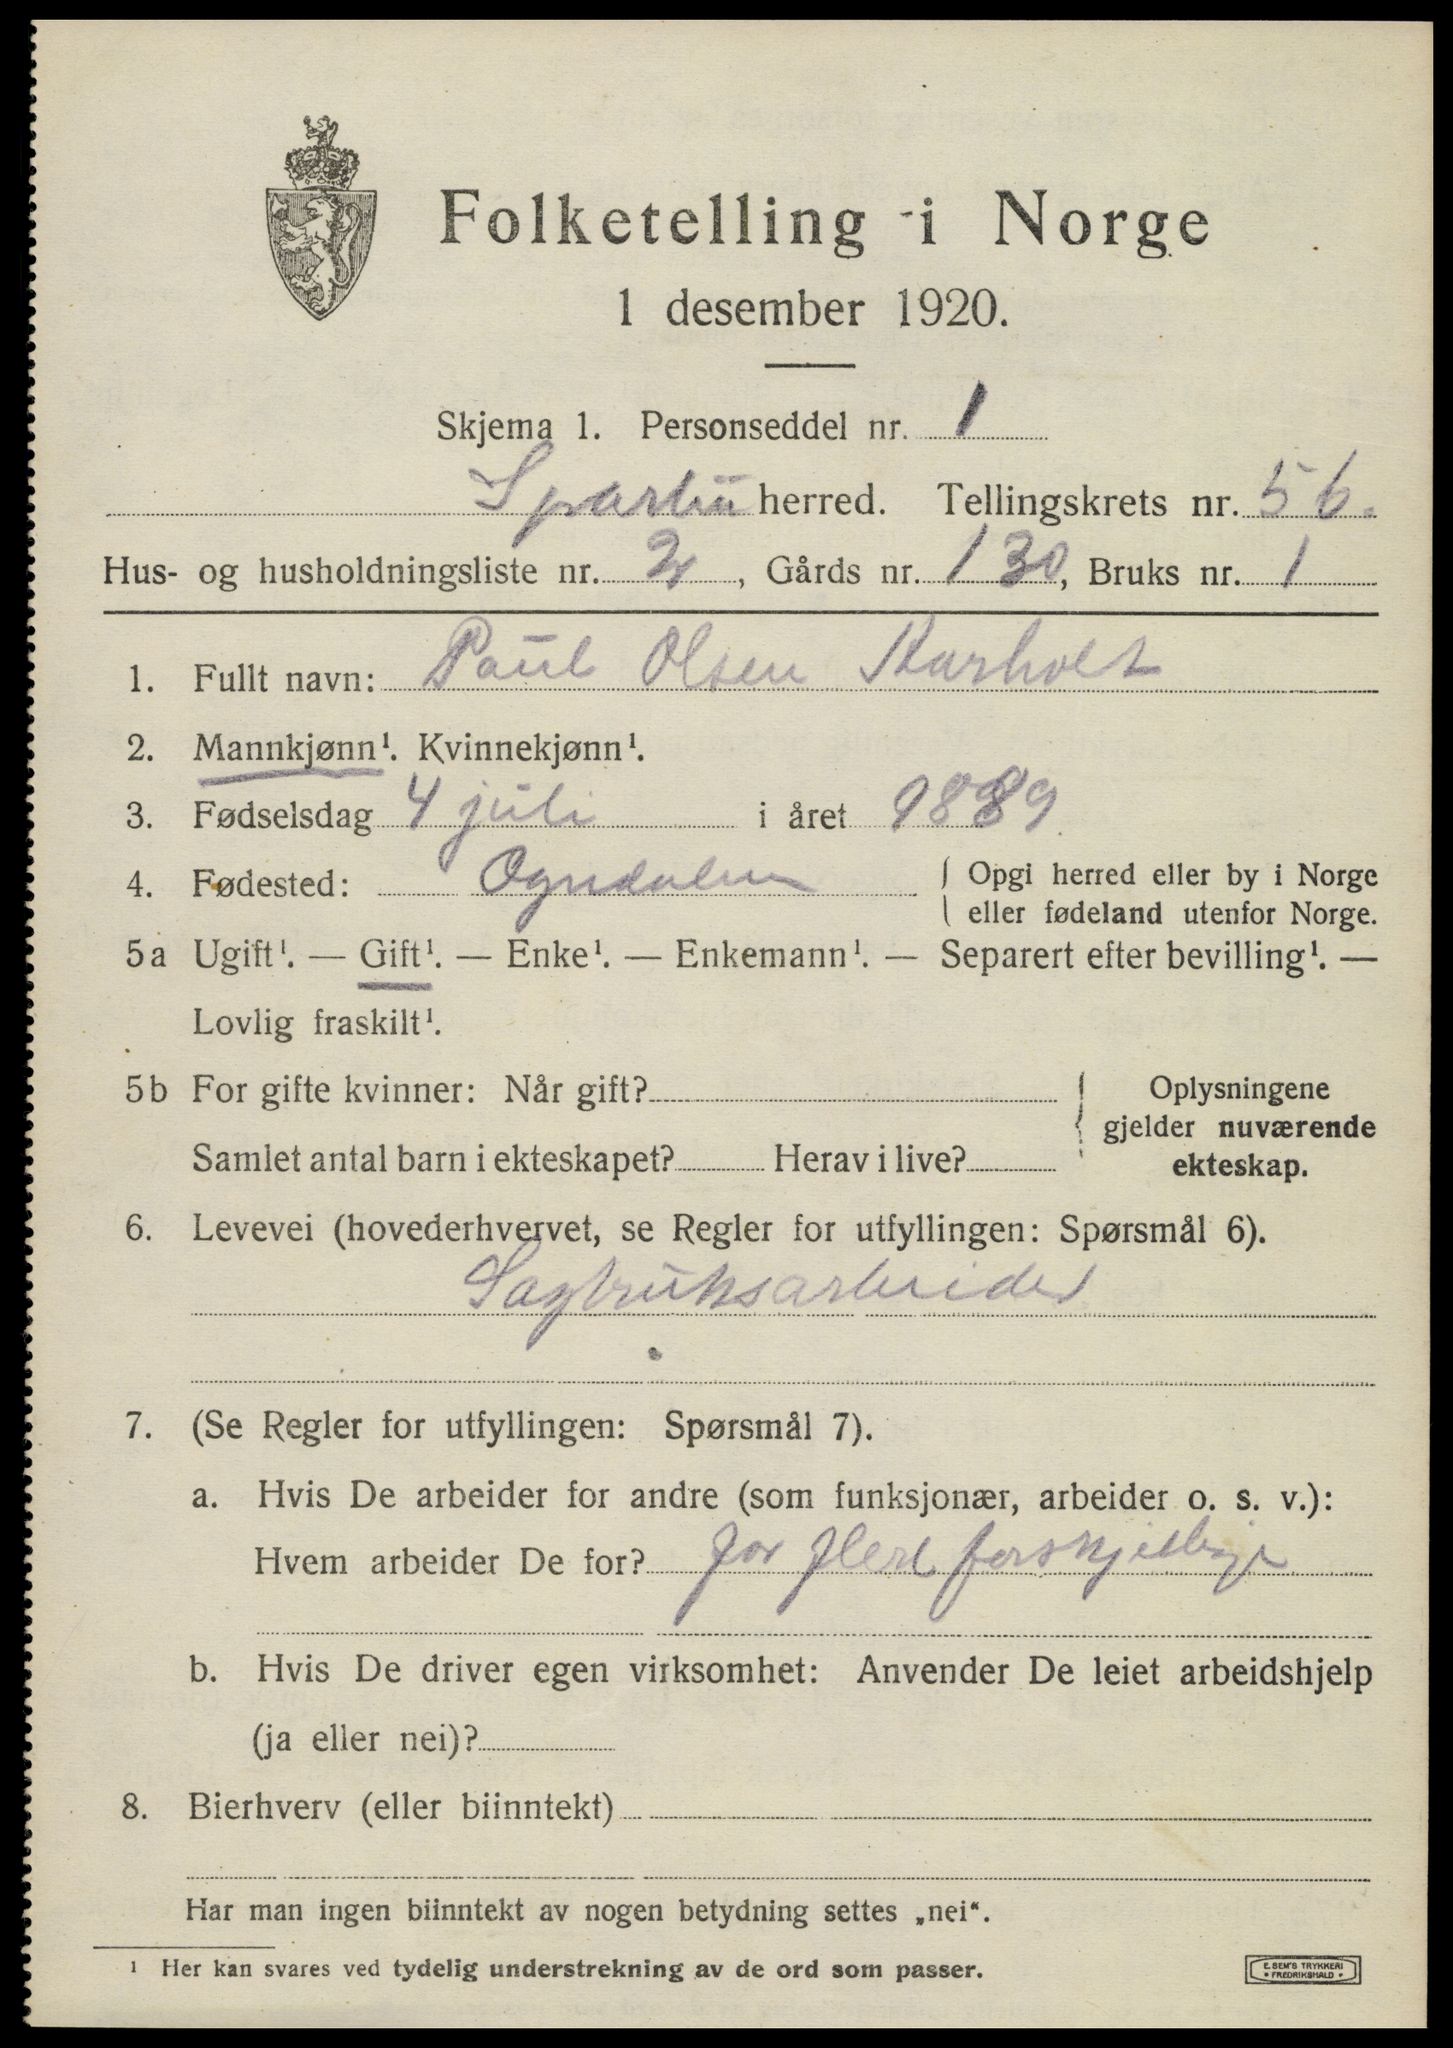 Folketelling i Norge
1 desember 1920.
Skjema 1. Personseddel nr. 1
Sparbu herred. Tellingskrets nr. 5 6.
Hus- og husholdningsliste nr. 2, Gårds nr. 130, Bruks nr. 1
1. Fullt navn: Paul Olsen
2. Mannkjønn¹. Kvinnekjønn¹.
3. Fødselsdag 4 juli i året 1889
4. Fødested: Ogndalen { Opgi herred eller by i Norge
eller fødeland utenfor Norge.
5a Ugift¹. — Gift¹. — Enke¹. — Enkemann¹. — Separert efter bevilling¹. —
Lovlig fraskilt¹.
5b For gifte kvinner: Når gift? { Oplysningene
gjelder nuværende
Samlet antal barn i ekteskapet? Herav i live? ekteskap.
6. Levevei (hovederhvervet, se Regler for utfyllingen: Spørsmål 6).
Sagbruksarbeider
7. (Se Regler for utfyllingen: Spørsmål 7).
a. Hvis De arbeider for andre (som funksjonær, arbeider o. s. v.):
Hvem arbeider De for? for flere forskjellige
b. Hvis De driver egen virksomhet: Anvender De leiet arbeidshjelp
(ja eller nei)?
8. Bierhverv (eller biinntekt)
Har man ingen biinntekt av nogen betydning settes „nei“.
¹ Her kan svares ved tydelig understrekning av de ord som passer.
E. SEM'S TRYKKERI
• FREDRIKSHALD •